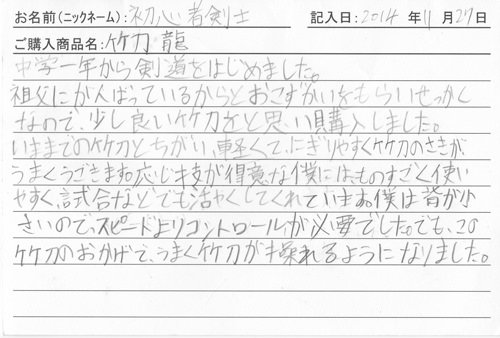 お名前(ニックネーム):初心者剣士 記入日:2014年11月27日
ご購入商品名:竹刀 龍
中学一年から剣道をはじめました。
祖父にがんばっているからとおこずかいをもらいせっかく
なので、少し良い竹刀をと思い購入しました。
いままでの竹刀とちがい、軽くて、にぎりやすく竹刀のさきが
うまくうごきます。応じ技が得意な僕にはものすごく使い
やすく、試合などでも活やくしてくれています。僕は背が小
さいので、スピードよりコントロールが必要でした。でも、この
竹刀のおかげで、うまく竹刀が操れるようになりました。